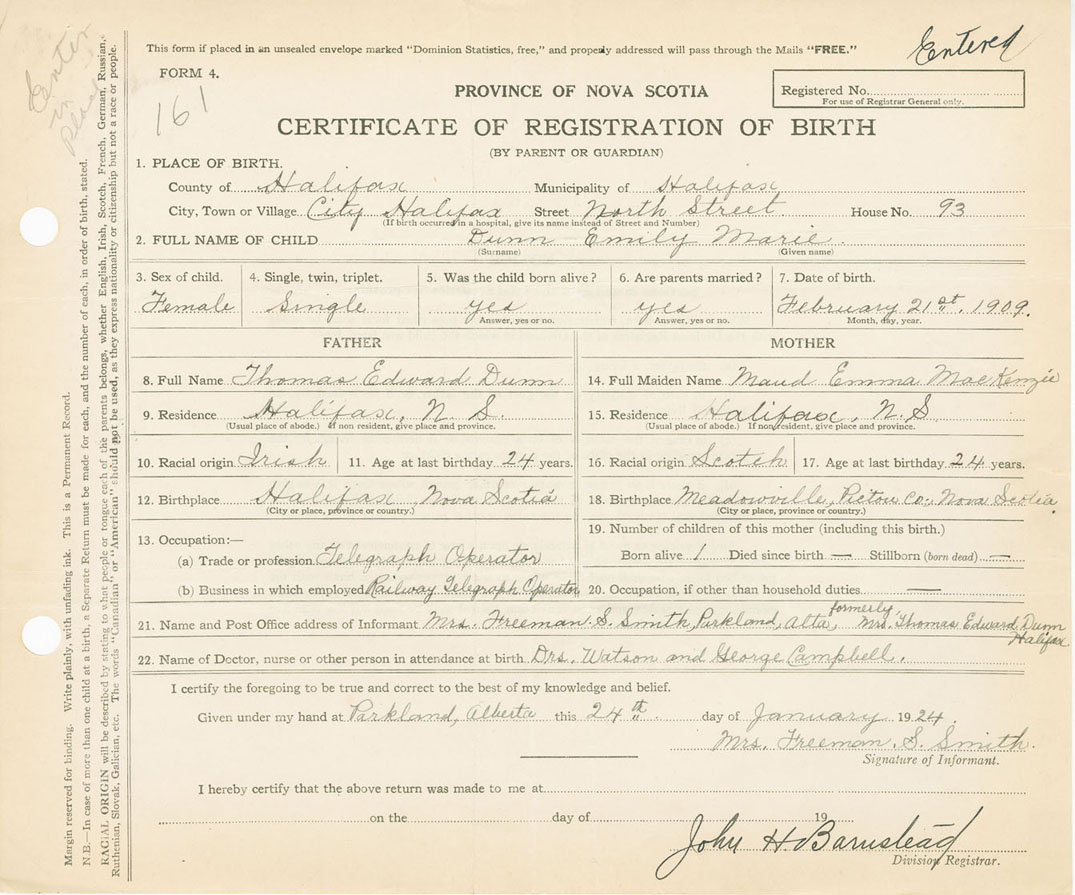 This form if placed in an unsealed envelope marked "Dominion Statistics, free," and properly addressed will pass through the Mails "FREE."
Entered
Enter in
FORM 4.
161
PROVINCE OF NOVA SCOTIA
Registered No.
For use of Registrar General only.
CERTIFICATE OF REGISTRATION OF BIRTH
(BY PARENT OR GUARDIAN)
1. PLACE OF BIRTH.
County of Halifax Municipality of Halifax
City, Town or Village City Halifax Street North Street House No. 93
(If birth occurred in a hospital, give its name instead of Street and Number)
2. FULL NAME OF CHILD Dunn Emily Marie
(Surname) (Given name)
3. Sex of child. 4. Single, twin, triplet. 5. Was the child born alive? 6. Are parents married? 7. Date of birth.
Female Single yes yes February 21st. 1909.
Answer, yes or no. Answer, yes or no. Month, day, year.
FATHER MOTHER
8. Full Name Thomas Edward Dunn 14. Full Maiden Name Maud Emma MacKenzie
9. Residence Halifax, N. S. 15. Residence Halifax, N. S
(Usual place of abode.) If non resident, give place and province. (Usual place of abode.) If non resident, give place and province.
10. Racial origin Irish 11. Age at last birthday 24 years. 16. Racial origin Scotch 17. Age at last birthday 24 years.
12. Birthplace Halifax Nova Scotia 18. Birthplace Meadowville, Pictou Co., Nova Scotia.
(City or place, province or country.) (City or place, province or country.)
13. Occupation:— 19. Number of children of this mother (including this birth.)
(a) Trade or profession Telegraph Operator Born alive 1 Died since birth — Stillborn (born dead) —
(b) Business in which employed Railway Telegraph Operator 20. Occupation, if other than household duties —
21. Name and Post Office address of Informant Mrs. Freeman S. Smith, Parkland, Alta, formerly Mrs. Thomas Edward Dunn Halifax
22. Name of Doctor, nurse or other person in attendance at birth Drs. Watson and George Campbell.
I certify the foregoing to be true and correct to the best of my knowledge and belief.
Given under my hand at Parkland, Alberta this 24th day of January 1924.
Mrs. Freeman. S. Smith.
Signature of Informant.
I hereby certify that the above return was made to me at
on the day of 19
John H Barnstead
Division Registrar.
Margin reserved for binding. Write plainly, with unfading ink. This is a Permanent Record.
N.B.—In case of more than one child at a birth, a Separate Return must be made for each, and the number of each, in order of birth, stated.
RACIAL ORIGIN will be described by stating to what people or tongue each of the parents belongs, whether English, Irish, Scotch, French, German, Russian,
Ruthenian, Slovak, Galician, etc. The words "Canadian" or "American" should not be used, as they express nationality or citizenship but not a race or people.